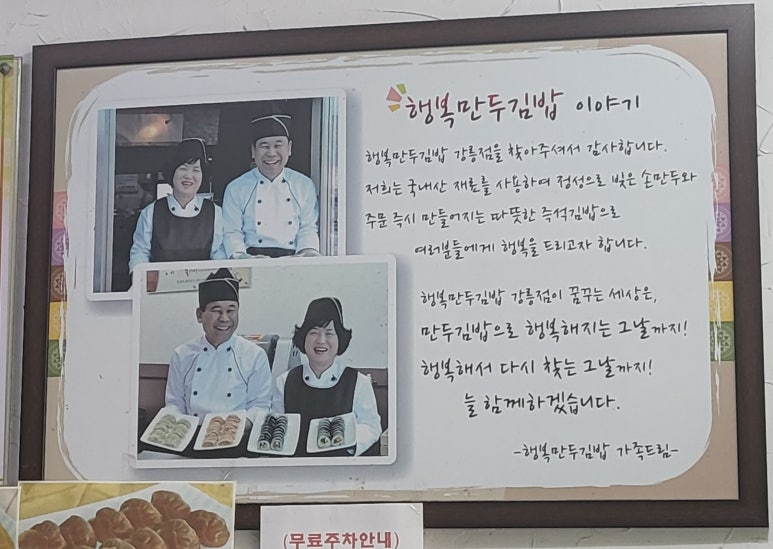 행복만두김밥 이야기
행복만두김밥 강릉점을 찾아주셔서 감사합니다.
저희는 국내산 재료를 사용하여 정성으로 빚은 손만두와
주문 즉시 만들어지는 따뜻한 즉석김밥으로
여러분들에게 행복을 드리고자 합니다.
행복만두김밥 강릉점이 꿈꾸는 세상은,
만두김밥으로 행복해지는 그날까지!
행복해서 다시 찾는 그날까지!
늘 함께하겠습니다.
-행복만두김밥 가족드림-
(무료주차안내)